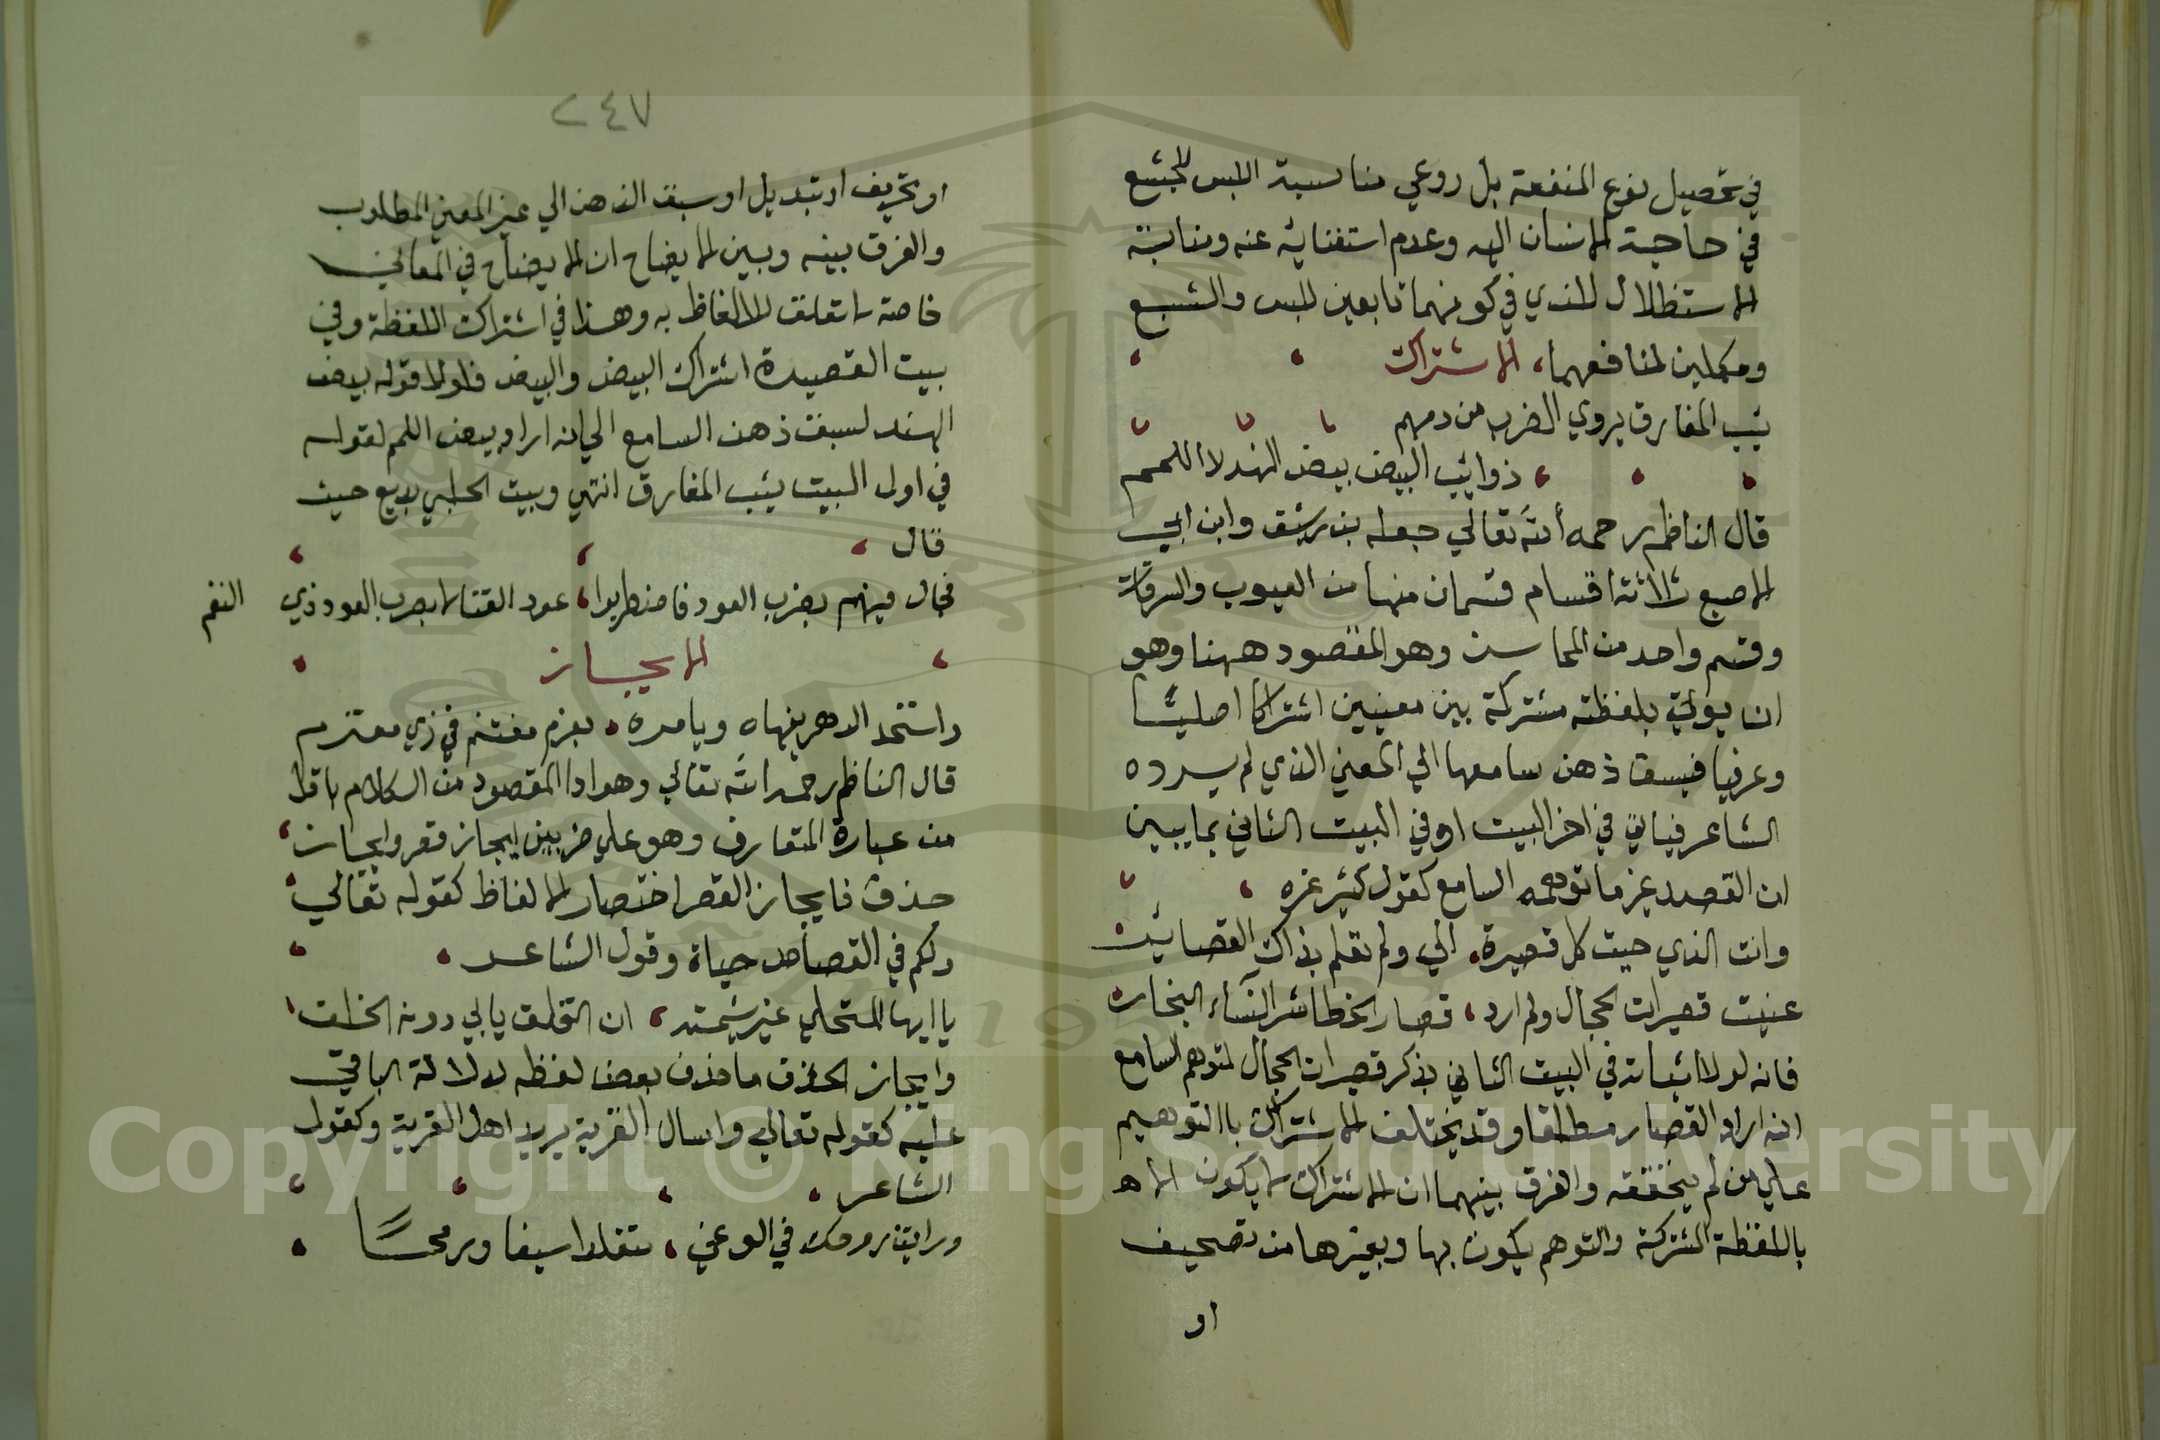 في تحصيل نوع المنفعة بل روعي مناسبة اللبس للجشع
في حاجة الانسان اليه وعدم استغنائه عنه ومناسبة
الاستظلال للندي في كونهما تابعين للبس والشبع
ومكملين لمنافعهما، الاشتراك
شيب المفارق يروي الضرب من دمهم
ذوايب البيض بيض الهند لا اللمم
قال الناظم رحمه الله تعالي جعله بن رشيق وابن ابي
الاصبع ثلاثة اقسام قسمان منها من العيوب والسرقات
وقسم واحد من المحاسن وهو المقصود ههنا وهو
ان يوتي بلفظة مشتركة بين معنيين اشتراكا اصليا
وعرفيا فيسبق ذهن سامعها الي المعني الذي لم يرده
الشاعر فياتي في اخر البيت او في البيت الثاني بما يبين
ان القصد غير ما توهمه السامع كقول كثير عزه
وانت الذي حببت كل قصيرة، الي ولم تعلم بذاك القصائر
عنيت قصيرات الحجال ولم ارد، قصار الخطا شر النساء البحاتر
فانه لولا اثباته في البيت الثاني بذكر قصيرات الحجال لتوهم السامع
انه اراد القصار مطلقا وقد يختلف الاشتراك باالتوهيم
علي من لم يحققه والفرق بينهما ان الاشتراك لا يكون الا
باللفظة المشتركة والتوهم يكون بها وبغيرها من تصحيف
او
٢٤٧
او تحريف او تبديل او سبق الذهن الي غير المعني المطلوب
والفرق بينه وبين الايضاح ان الايضاح في المعاني
خاصة لا تعلق للالفاظ به وهذا في اشتراك اللفظة وفي
بيت القصيدة اشتراك البيض والبيض فلولا قوله بيض
الهند لسبق ذهن السامع الي انه اراد بيض اللمم لقوله
في اول البيت شيب المفارق انتهي وبيت الحلبي بديع حيث
قال
فجال فيهم بضرب العود فاضطربوا، عود القنا لا بضرب العود ذي النغم
الايجاز
واستخدم الدهر ينهاه ويامره، بعزم مغتنم في زي مغترم
قال الناظم رحمه الله تعالي وهو ادا المقصود من الكلام باقل
من عبارة المتعارف وهو علي ضربين ايجاز قصر وايجاز
حذف فايجاز القصر اختصار الالفاظ كقوله تعالي
ولكم في القصاص حياة وقول الشاعر
يا ايها المتحلي غير شيمته، ان التخلق يابي دونه الخلق
وايجاز الحذف ما حذف بعض لفظه لدلالة الباقي
عليه كقوله تعالي واسال القرية يريد اهل القرية وكقول
الشاعر
ورايت زوجك في الوغي، متقلدا سيفا ورمحا